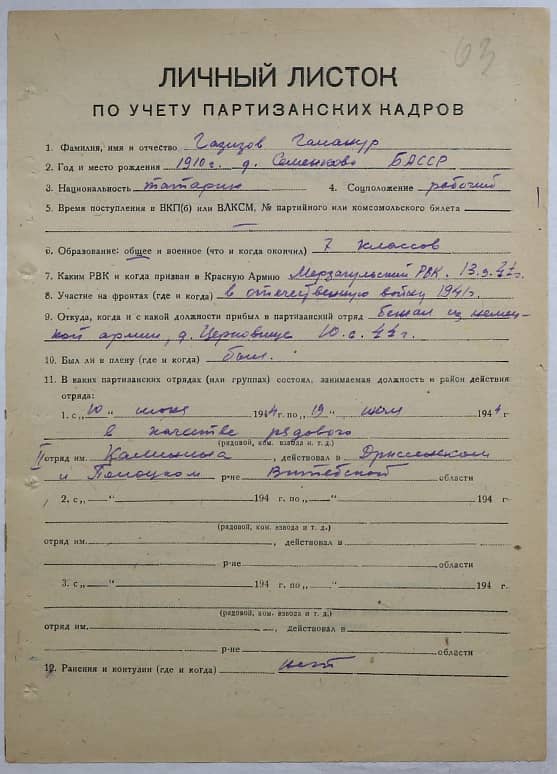 63
ЛИЧНЫЙ ЛИСТОК
ПО УЧЕТУ ПАРТИЗАНСКИХ КАДРОВ
1. Фамилия, имя и отчество Газизов
2. Год и место рождения 1910 г. д. Семенково БАССР
3. Национальность татарин 4. Соцположение рабочий
5. Время поступления в ВКП(б) или ВЛКСМ, № партийного или комсомольского билета
—
6. Образование: общее и военное (что и когда окончил) 7 классов
7. Каким РВК и когда призван в Красную Армию РВК.
8. Участие на фронтах (где и когда) в отечественную войну 1941 г.
9. Откуда, когда и с какой должности прибыл в партизанский отряд бежал из немец-
кой армии, д. Церковище 10.6.44 г.
10. Был ли в плену (где и когда) был.
11. В каких партизанских отрядах (или группах) состоял, занимаемая должность и район действия
отряда:
1. с „10" июня 1944 г. по „19" июля 1944 г
в качестве рядового
(рядовой, ком. взвода и т. д.)
II отряд им. Калинина, действовал в Дриссенском
и Полоцком р-не Витебской области
2. с „ " 194 г. по „ " 194 г
(рядовой, ком. взвода и т. д.)
отряд им. , действовал в
р-не области
3. с „ " 194 г. по „ " 194 г.
(рядовой, ком. взвода и т. д.)
отряд им. , действовал в
р-не области
12. Ранения и контузии (где и когда) нет